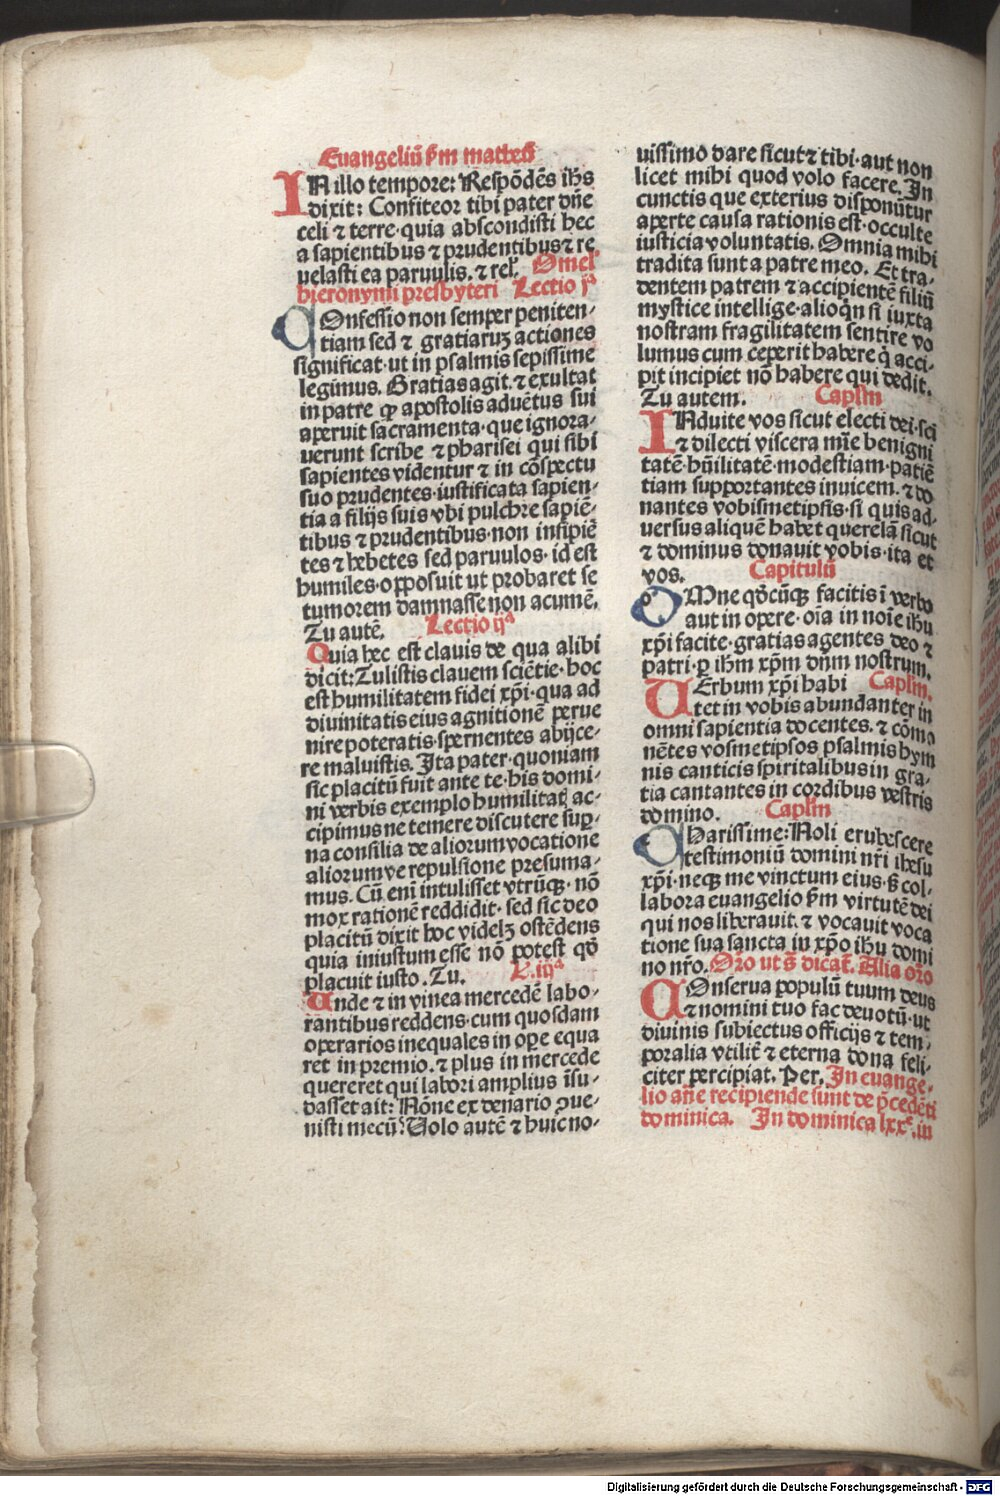 Euangeliū ẜm matheū
IN illo tempore: Respōdēs ihs
dixit: Confiteor tibi pater dn̄e
celi ⁊ terre· quia abscondisti hec
a sapientibus ⁊ prudentibus ⁊ re
uelasti ea paruulis. ⁊ rel. Omel
hieronymi presbyteri Lectio jᵃ
COnfessio non semper peniten-
tiam sed ⁊ gratiaruꝫ actiones
significat· ut in psalmis sepissime
legimus. Gratias agit. ⁊ exultat
in patre ꝙ apostolis aduētus sui
aperuit sacramenta· que ignora-
uerunt scribe ⁊ pharisei qui sibi
sapientes videntur ⁊ in cōspectu
suo prudentes· iustificata sapien-
tia a filijs suis vbi pulchre sapiē-
tibus ⁊ prudentibus· non insipiē
tes ⁊ hebetes sed paruulos· id est
humiles· opposuit ut probaret se
tumorem damnasse non acumē.
Tu autē. Lectio ijᵃ
Quia hec est clauis de qua alibi
dicit: Tulistis clauem sciētie· hoc
est humilitatem fidei xp̄i· qua ad
diuinitatis eius agnitionē perue
nire poteratis· spernentes abijce-
re maluistis. Ita pater· quoniam
sic placitū fuit ante te· his domi-
ni verbis exemplo humilitatꝭ ac-
cipimus ne temere discutere suꝑ-
na consilia de aliorum vocatione
aliorumve repulsione presuma-
mus. Cū eni intulisset vtrūqꝫ· nō
mox rationē reddidit· sed sic deo
placitū dixit hoc videlꝫ ostēdens
quia iniustum esse nō potest qō
placuit iusto. Tu. L. iijᵃ
Unde ⁊ in vinea mercedē labo-
rantibus reddens· cum quosdam
operarios inequales in oꝑe equa
ret in premio. ⁊ plus in mercede
quereret qui labori amplius īsu-
dasset ait: Nōne ex denario ꝯue-
nisti mecū? Uolo autē ⁊ huic no-
uissimo dare sicut ⁊ tibi· aut non
licet mihi quod volo facere. In
cunctis que exterius disponūtur
aperte causa rationis est· occulte
iusticia voluntatis. Omnia mihi
tradita sunt a patre meo. Et tra-
dentem patrem ⁊ accipientē filiū
mystice intellige· alioqn̄ si iuxta
nostram fragilitatem sentire vo
lumus cum ceperit habere q̄ acci-
pit incipiet nō habere qui dedit.
Tu autem. Caplm̄
INduite vos sicut electi dei· scī
⁊ dilecti viscera mīe benigni
tatē· hūilitatē· modestiam· patiē
tiam supportantes inuicem. ⁊ do
nantes vobismetipsis· si quis ad-
versus aliquē habet querelā sicut
⁊ dominus donauit vobis· ita et
vos. Capitulū
OMne qōcūqꝫ facitis ī verbo
aut in opere· oīa in noīe ihu
xp̄i facite· gratias agentes deo ⁊
patri· ꝑ ihm xp̄m dn̄m nostrum.
UErbum xp̄i habi Caplm̄.
tet in vobis abundanter in
omni sapientia docentes. ⁊ cōmo
nētes vosmetipsos psalmis hym
nis canticis spiritalibus in gra-
tia cantantes in cordibus vestris
domino. Caplm̄
CHarissime: Noli erubescere
testimoniū domini nr̄i ihesu
xp̄i· neqꝫ me vinctum eius· ẜ col-
labora euangelio ẜm virtutē dei
qui nos liberauit. ⁊ vocauit voca
tione sua sancta in xp̄o ihu domi
no nr̄o. Or̄o ut s̄ dicat. Alia or̄o
COnserua populū tuum deus
⁊ nomini tuo fac deuotū· ut
diuinis subiectus officijs ⁊ tem-
poralia vtilit̄ ⁊ eterna dona feli-
citer percipiat. Per. In euange-
lio an̄e recipiende sunt de p̄cedēti
dominica. In dominica lxxᵉ. in
Digitalisierung gefördert durch die Deutsche Forschungsgemeinschaft - DFG